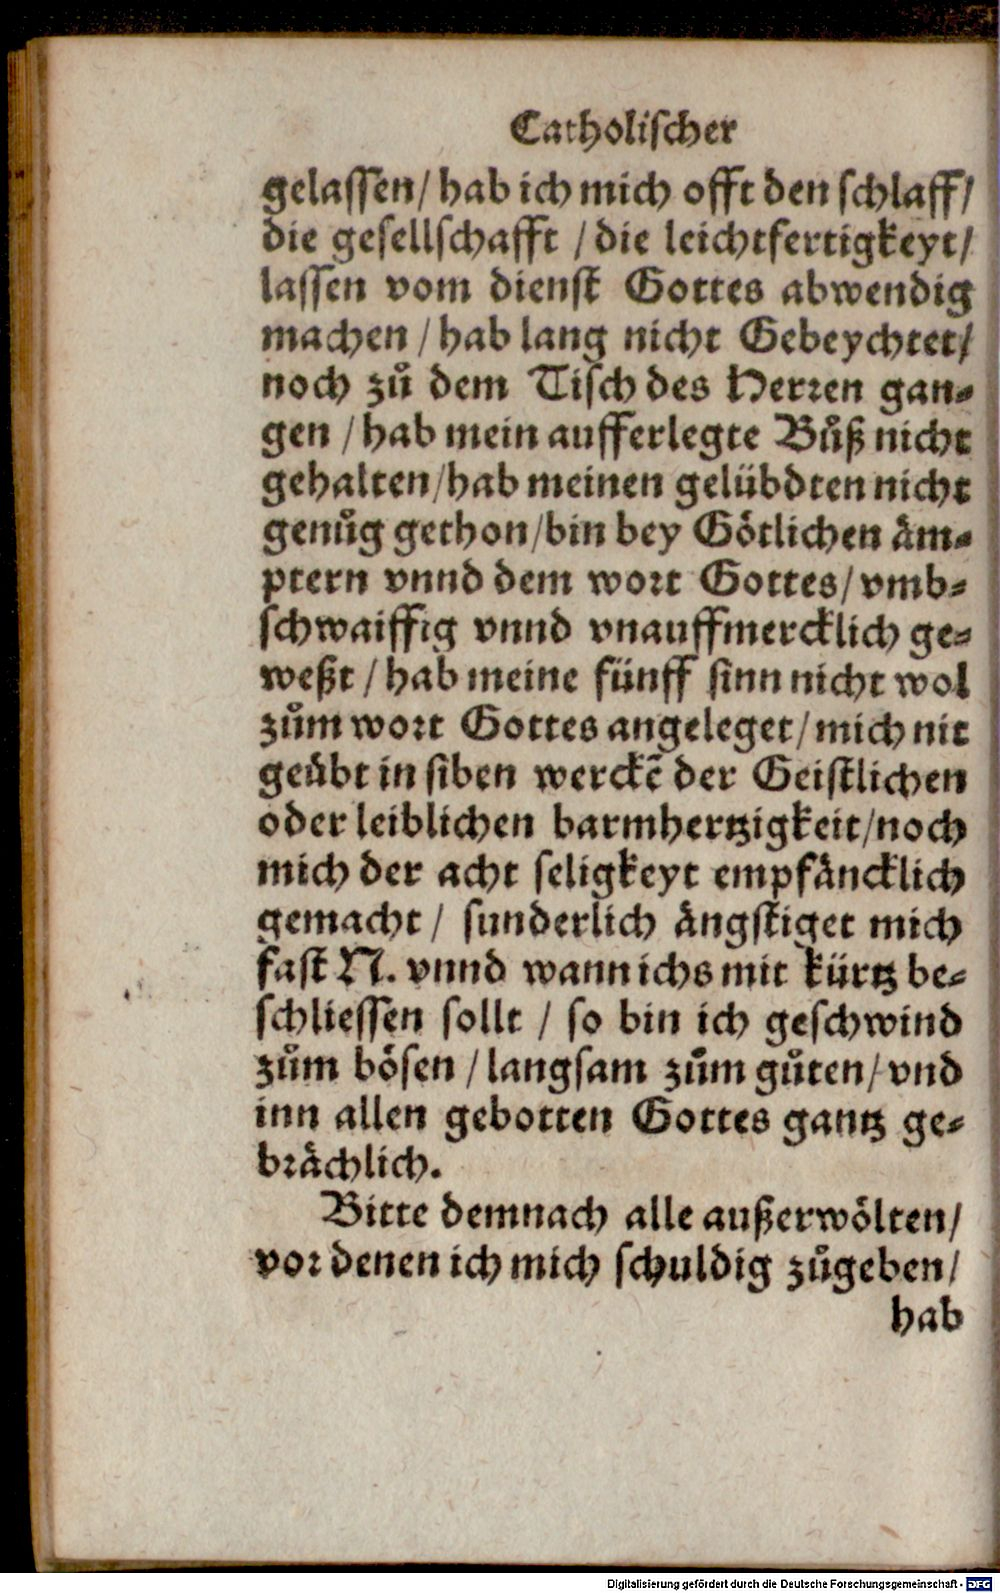 Catholischer
gelassen/ hab ich mich offt den schlaff/
die gesellschafft / die leichtfertigkeyt/
lassen vom dienst Gottes abwendig
machen / hab lang nicht Gebeychtet/
noch zů dem Tisch des Herren gan-
gen / hab mein aufferlegte Bůß nicht
gehalten/hab meinen gelübdten nicht
genůg gethon/bin bey Götlichen äm-
ptern vnnd dem wort Gottes/ vmb-
schwaiffig vnnd vnauffmercklich ge-
weßt / hab meine fünff sinn nicht wol
zům wort Gottes angeleget/ mich nit
geübt in siben werckẽ der Geistlichen
oder leiblichen barmhertzigkeit/noch
mich der acht seligkeyt empfäncklich
gemacht / sunderlich ängstiget mich
fast N. vnnd wann ichs mit kürtz be-
schliessen sollt / so bin ich geschwind
zům bösen / langsam zům gůten/ vnd
inn allen gebotten Gottes gantz ge-
brächlich.
Bitte demnach alle außerwölten/
vor denen ich mich schuldig zůgeben/
hab
Digitalisierung gefördert durch die Deutsche Forschungsgemeinschaft - DFG